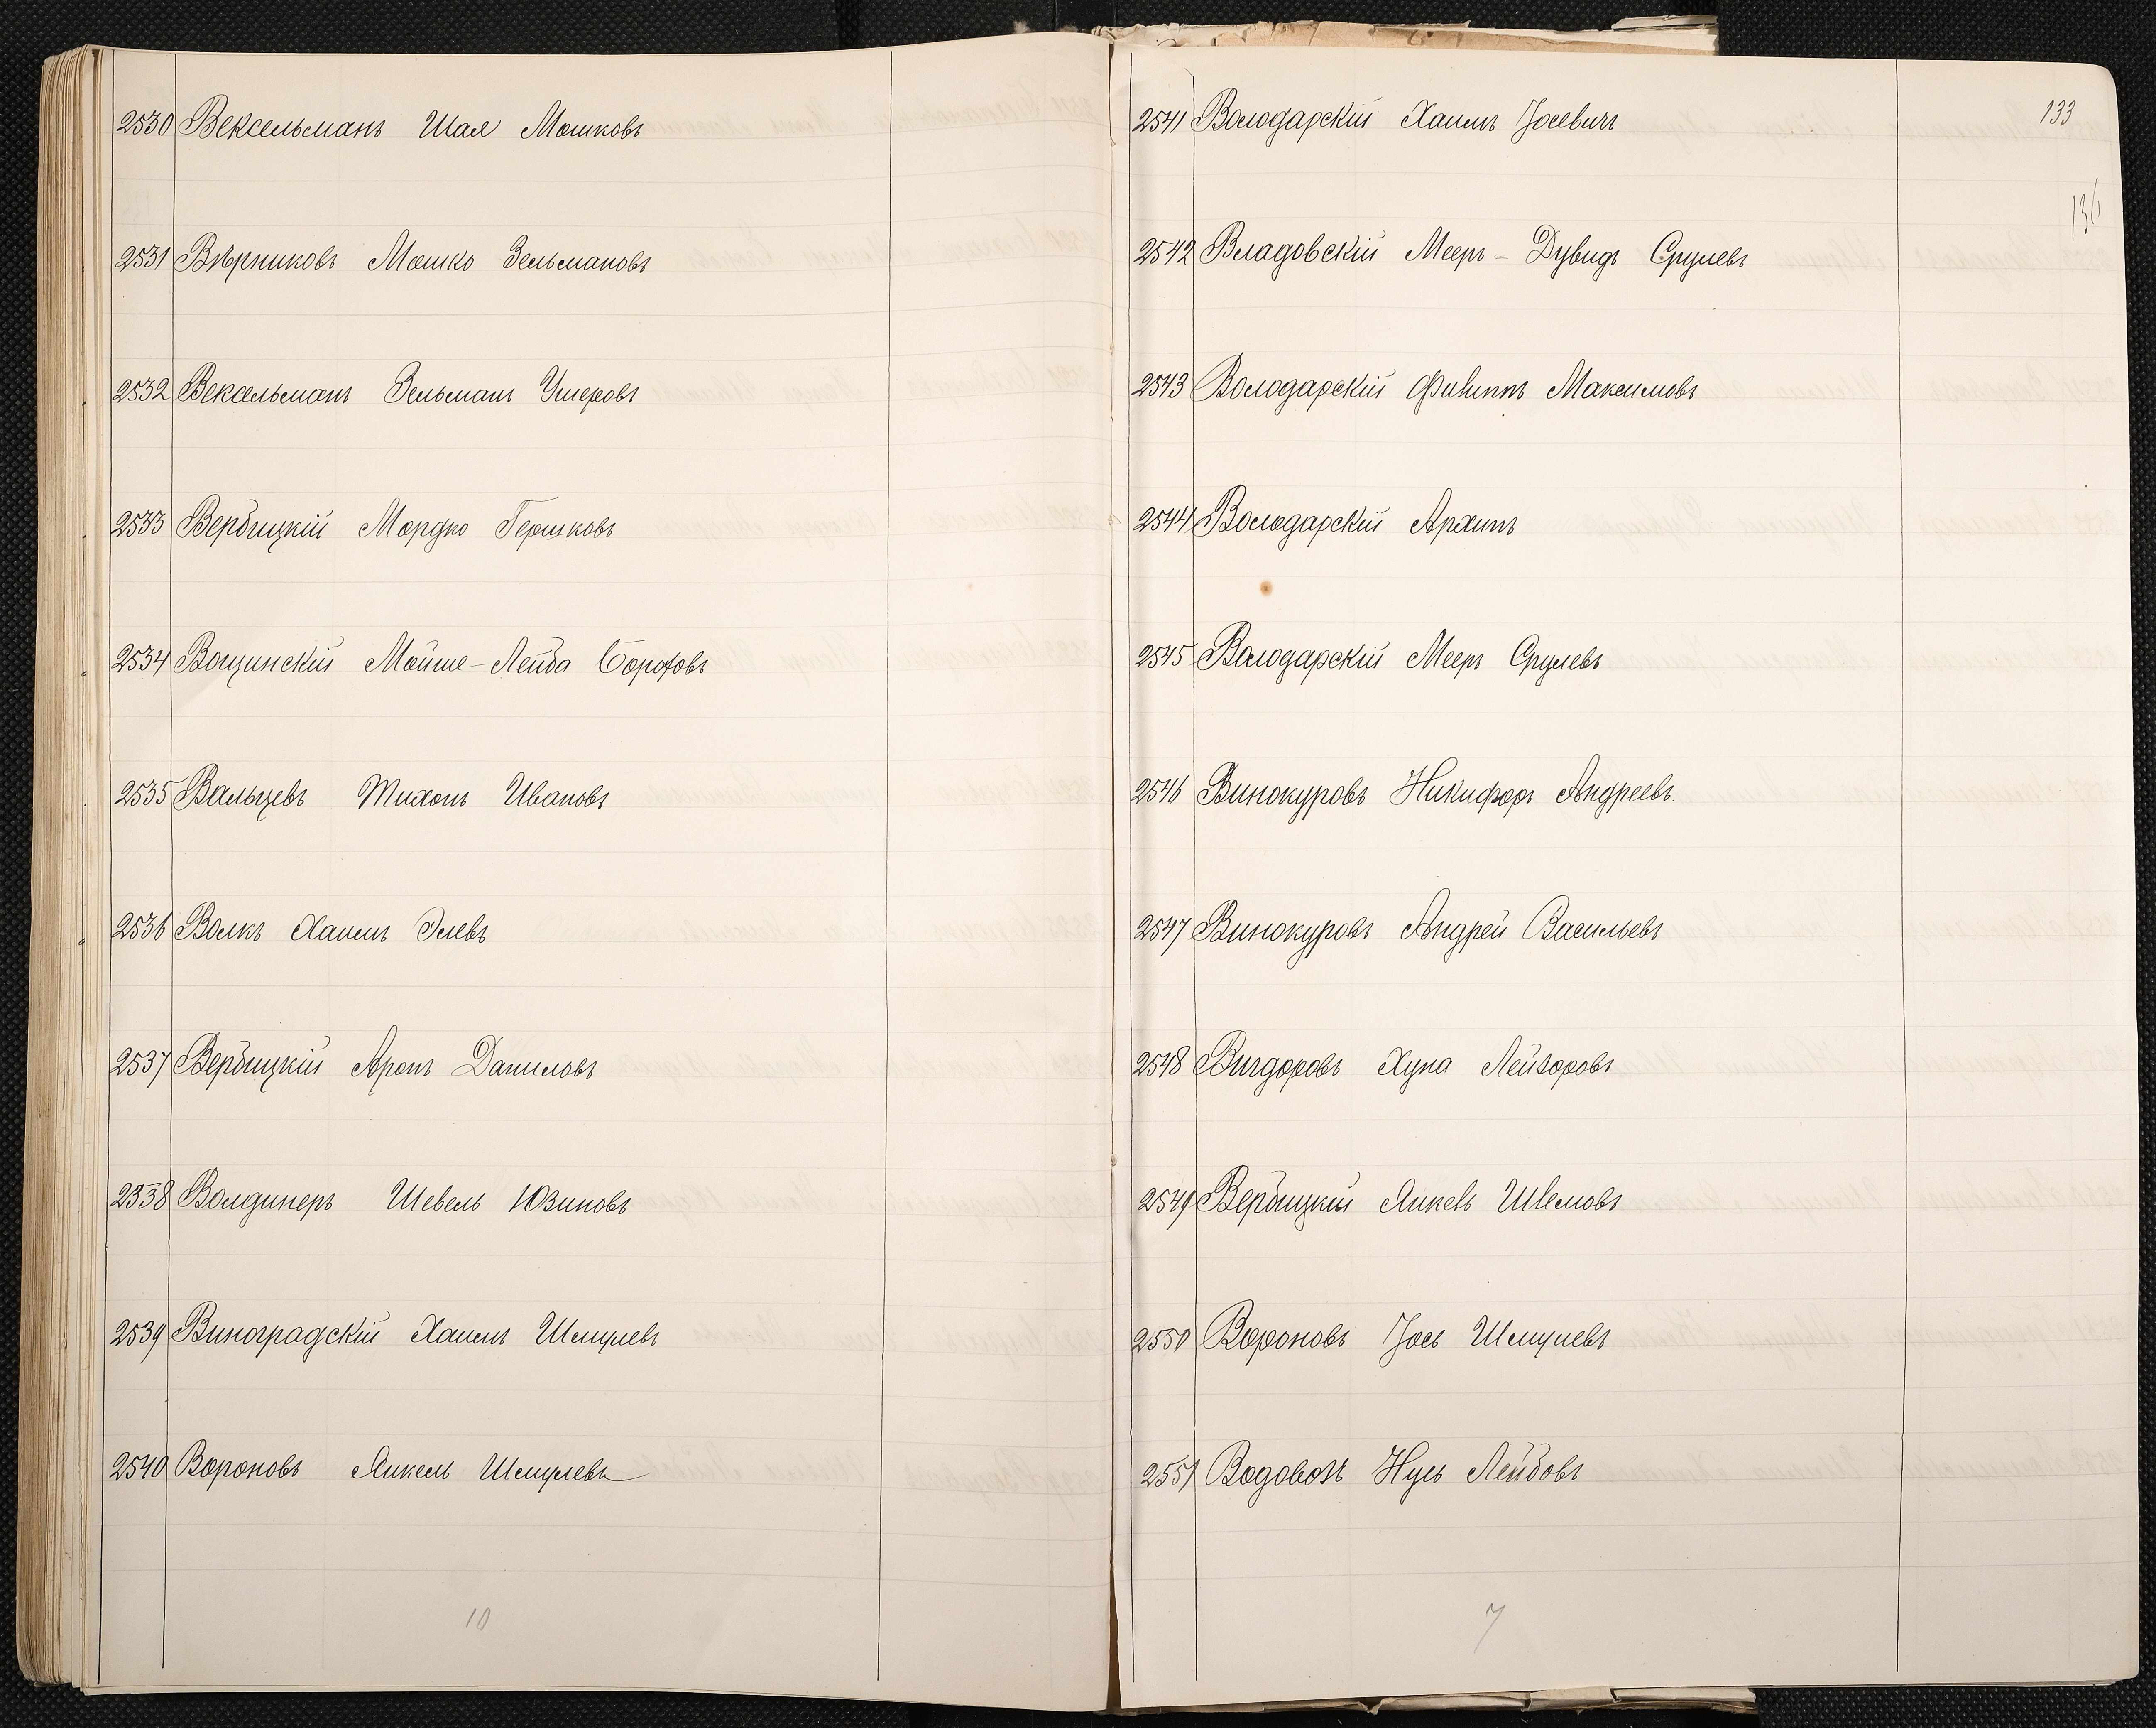 2530 Вексельманъ Шая Мошковъ
2531 Вѣрниковъ Мошко Зельмановъ
2532 Вексельманъ Зельманъ Умеровъ
2533 Вербицкій Мордко Гершковъ
2534 Вощинскій Мойше-Лейба Борохов
2535 Вальцевъ Тихонъ Ивановъ
2536 Волкъ Хаимъ Элевъ
2537 Вербицкій Аронъ Даниловъ
2538 Волдинеръ Шевель Юзиновъ
2539 Виноградскій Хаимъ Шмулевъ
2540 Вороновъ Янкель Шмулевъ
10
133
136
2541 Володарскій Хаимъ Іосевичъ
2542 Владовскій Мееръ-Дувидъ Срулевъ
2543 Володарскій Филиппъ Максимовъ
2544 Володарскій Архипъ
2545 Володарскій Мееръ Срулевъ
2546 Винокуровъ Никифоръ Андреевъ.
2547 Винокуровъ Андрей Васильевъ
2548 Вигдоровъ Хуна Лейзоровъ
2549 Вербицкій Янкель Шлемовъ
2550 Вороновъ Іось Шмулевъ
2551 Водовозъ Нусъ Лейбовъ
7